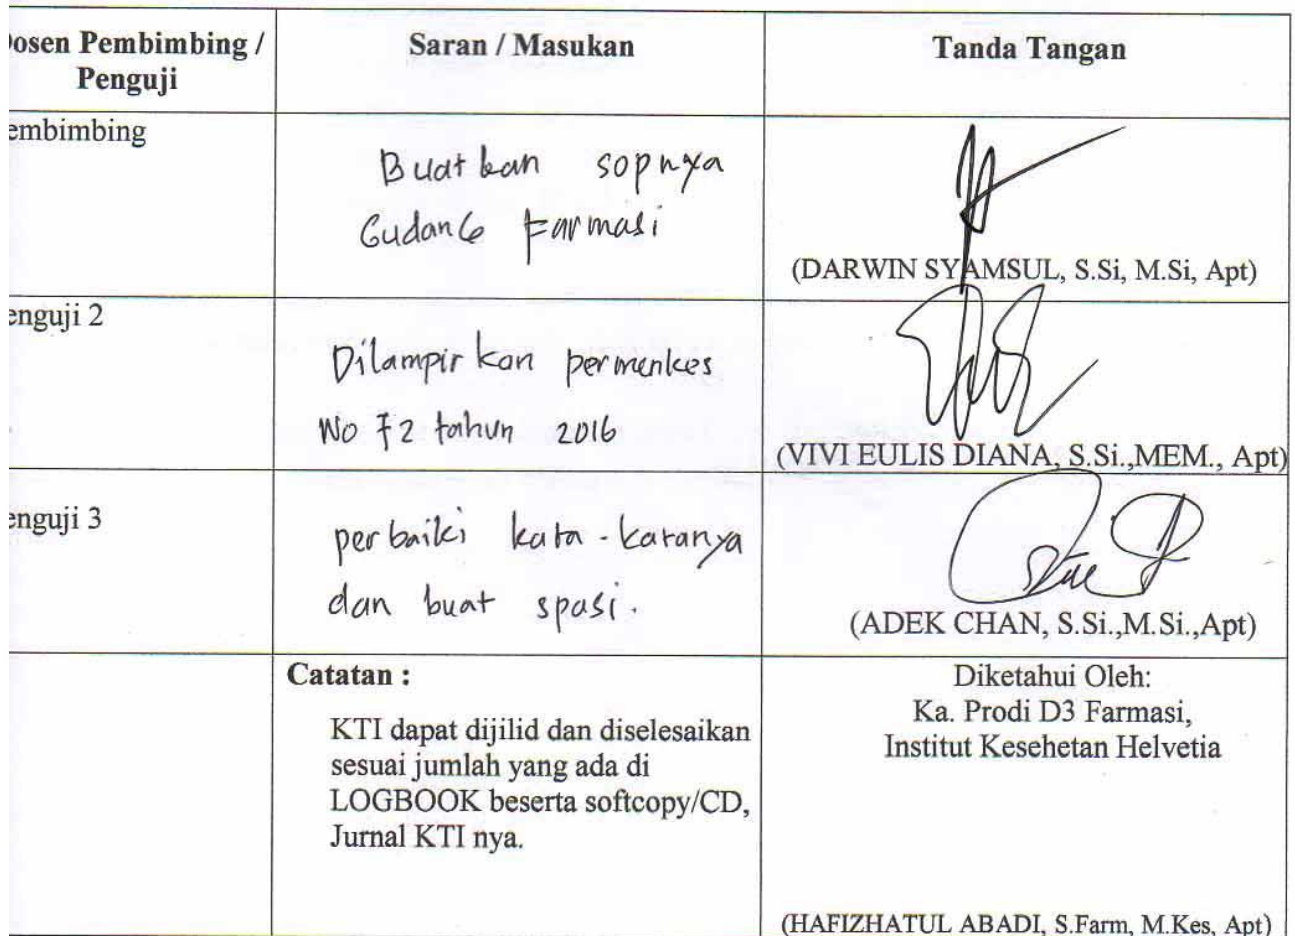 osen Pembimbing /
Penguji
Saran / Masukan
Tanda Tangan
embimbing
Buatkan sopnya
Gudang Farmasi
(DARWIN SYAMSUL, S.Si, M.Si, Apt)
enguji 2
Dilampirkan permenkes
No 72 tahun 2016
(VIVI EULIS DIANA, S.Si.,MEM., Apt)
enguji 3
perbaiki kata-katanya
dan buat spasi.
(ADEK CHAN, S.Si.,M.Si.,Apt)
Catatan :
KTI dapat dijilid dan diselesaikan
sesuai jumlah yang ada di
LOGBOOK beserta softcopy/CD,
Jurnal KTI nya.
Diketahui Oleh:
Ka. Prodi D3 Farmasi,
Institut Kesehetan Helvetia
(HAFIZHATUL ABADI, S.Farm, M.Kes, Apt)